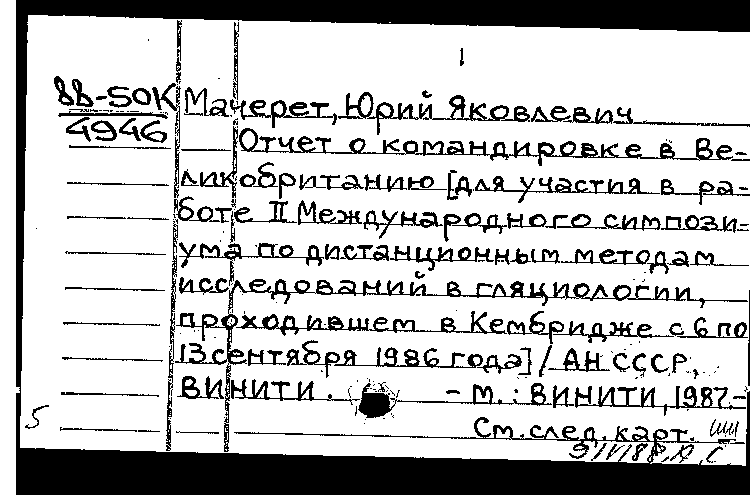 1
88-50К Мачерет, Юрий Яковлевич
4946 Отчет о командировке в Ве-
ликобританию [для участия в ра-
боте II Международного симпози-
ума по дистанционным методам
исследований в гляциологии,
проходившем в Кембридже с 6 по
13 сентября 1986 года] / АН СССР,
ВИНИТИ. - М.: ВИНИТИ, 1987.-
5 См. след. карт.